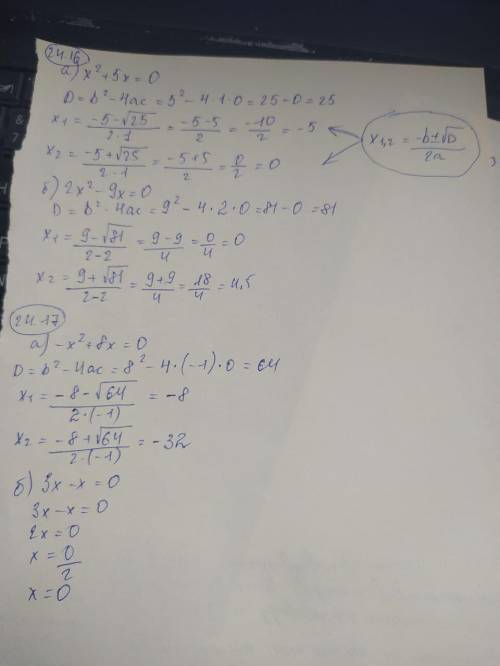 24.16
а) x² + 5x = 0
D = b² - 4ac = 5² - 4 · 1 · 0 = 25 - 0 = 25
x₁ = (-5 - √25)/(2 · 1) = (-5 - 5)/2 = -10/2 = -5
x₁,₂ = (-b ± √D)/(2a)
x₂ = (-5 + √25)/(2 · 1) = (-5 + 5)/2 = 0/2 = 0
б) 2x² - 9x = 0
D = b² - 4ac = 9² - 4 · 2 · 0 = 81 - 0 = 81
x₁ = (9 - √81)/(2 - 2) = (9 - 9)/4 = 0/4 = 0
x₂ = (9 + √81)/(2 - 2) = (9 + 9)/4 = 18/4 = 4,5
24.17
а) -x² + 8x = 0
D = b² - 4ac = 8² - 4 · (-1) · 0 = 64
x₁ = (-8 - √64)/(2 · (-1)) = -8
x₂ = (-8 + √64)/(2 · (-1)) = -32
б) 3x - x = 0
3x - x = 0
2x = 0
x = 0/2
x = 0